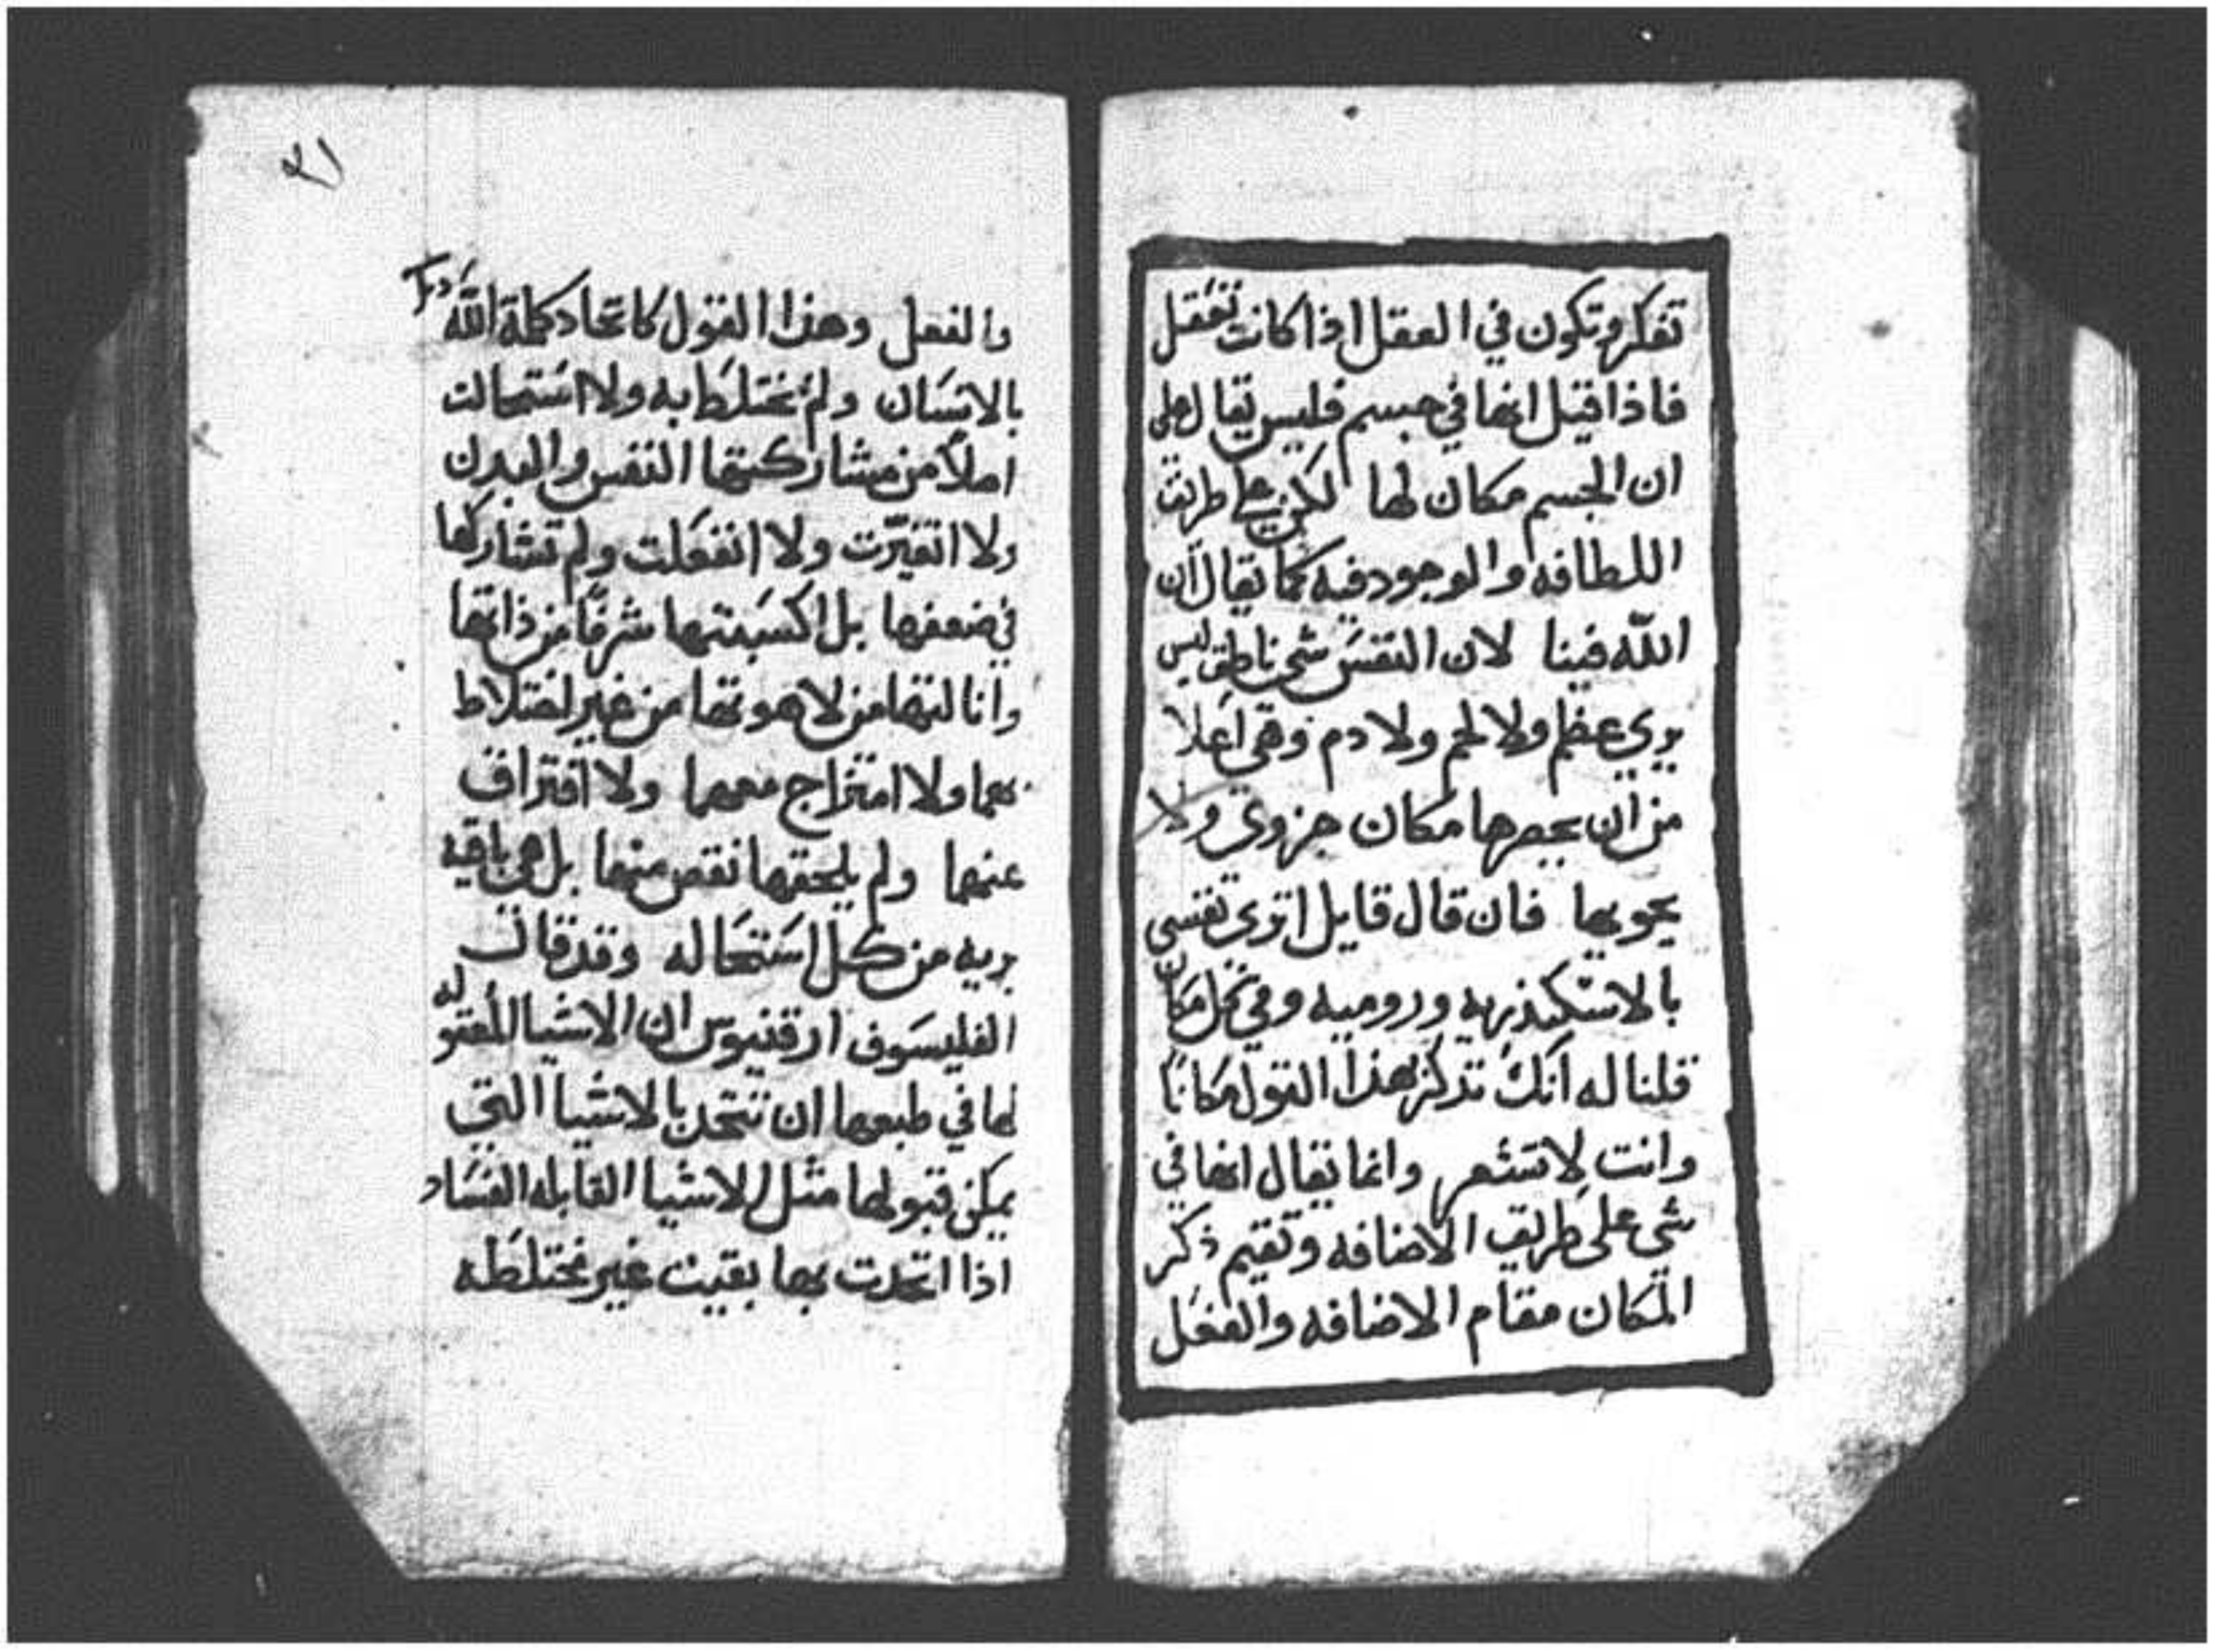 تفكر وتكون في العقل اذا كانت تعقل
فاذا قيل انها في جسم فليس يقال على
ان الجسم مكان لها لكن على طريق
اللطافه والوجود فيه كما يقال ان
الله فينا لان النفس شي ناطق ليس
بري عظم ولا لحم ولا دم وهي اعلا
من ان يحصرها مكان جزوي ولا
يحويها فان قال قايل اتري نفسي
بالاسكندريه وروميه وفي كل مكان
قلنا له انك تذكر بهذا القول مكانا
وانت لا تشعر وانما يقال انها في
شي على طريق الاضافه وتقيم ذكر
المكان مقام الاضافه والفعل
٢١
والفعل وهذا القول كاتحاد كلمة الله
بالانسان ولم تختلط به ولا استحالت
اصلا من مشاركتها النفس والبدن
ولا اتغيرت ولا انفعلت ولم تشاركها
في ضعفها بل اكسبتها شرفا من ذاتها
وانالتها من لاهوتها من غير اختلاط
بهما ولا امتزاج معهما ولا افتراق
عنهما ولم يلحقها نقص منهما بل هي باقيه
بريه من كل استحاله وقد قال
الفيلسوف ان الاشيا المعقوله
لها في طبعها ان تتحد بالاشيا التي
يمكن قبولها مثل الاشيا القابله الفساد
اذا اتحدت بها بقيت غير مختلطه